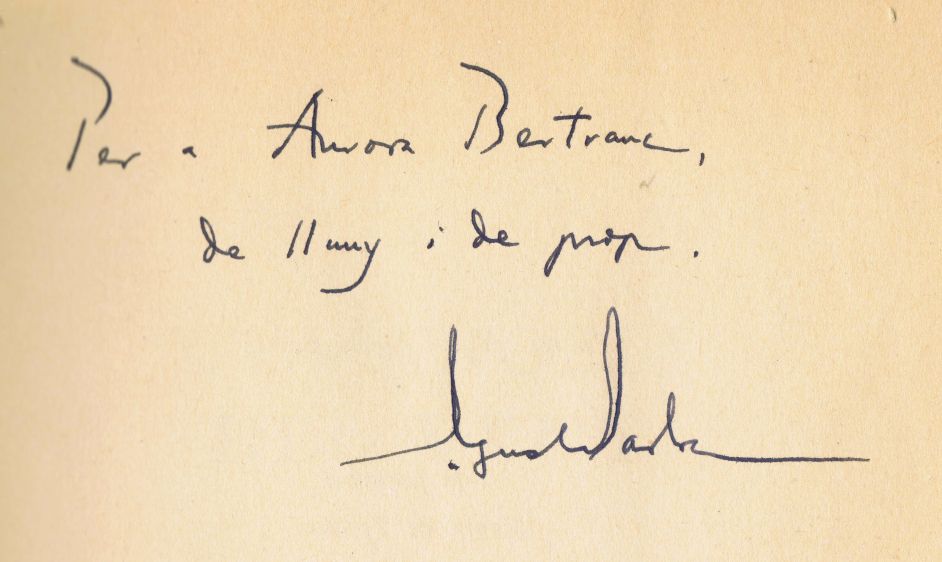 Per a Aurora Bertrana,
de lluny i de prop.
Agustí Bartra